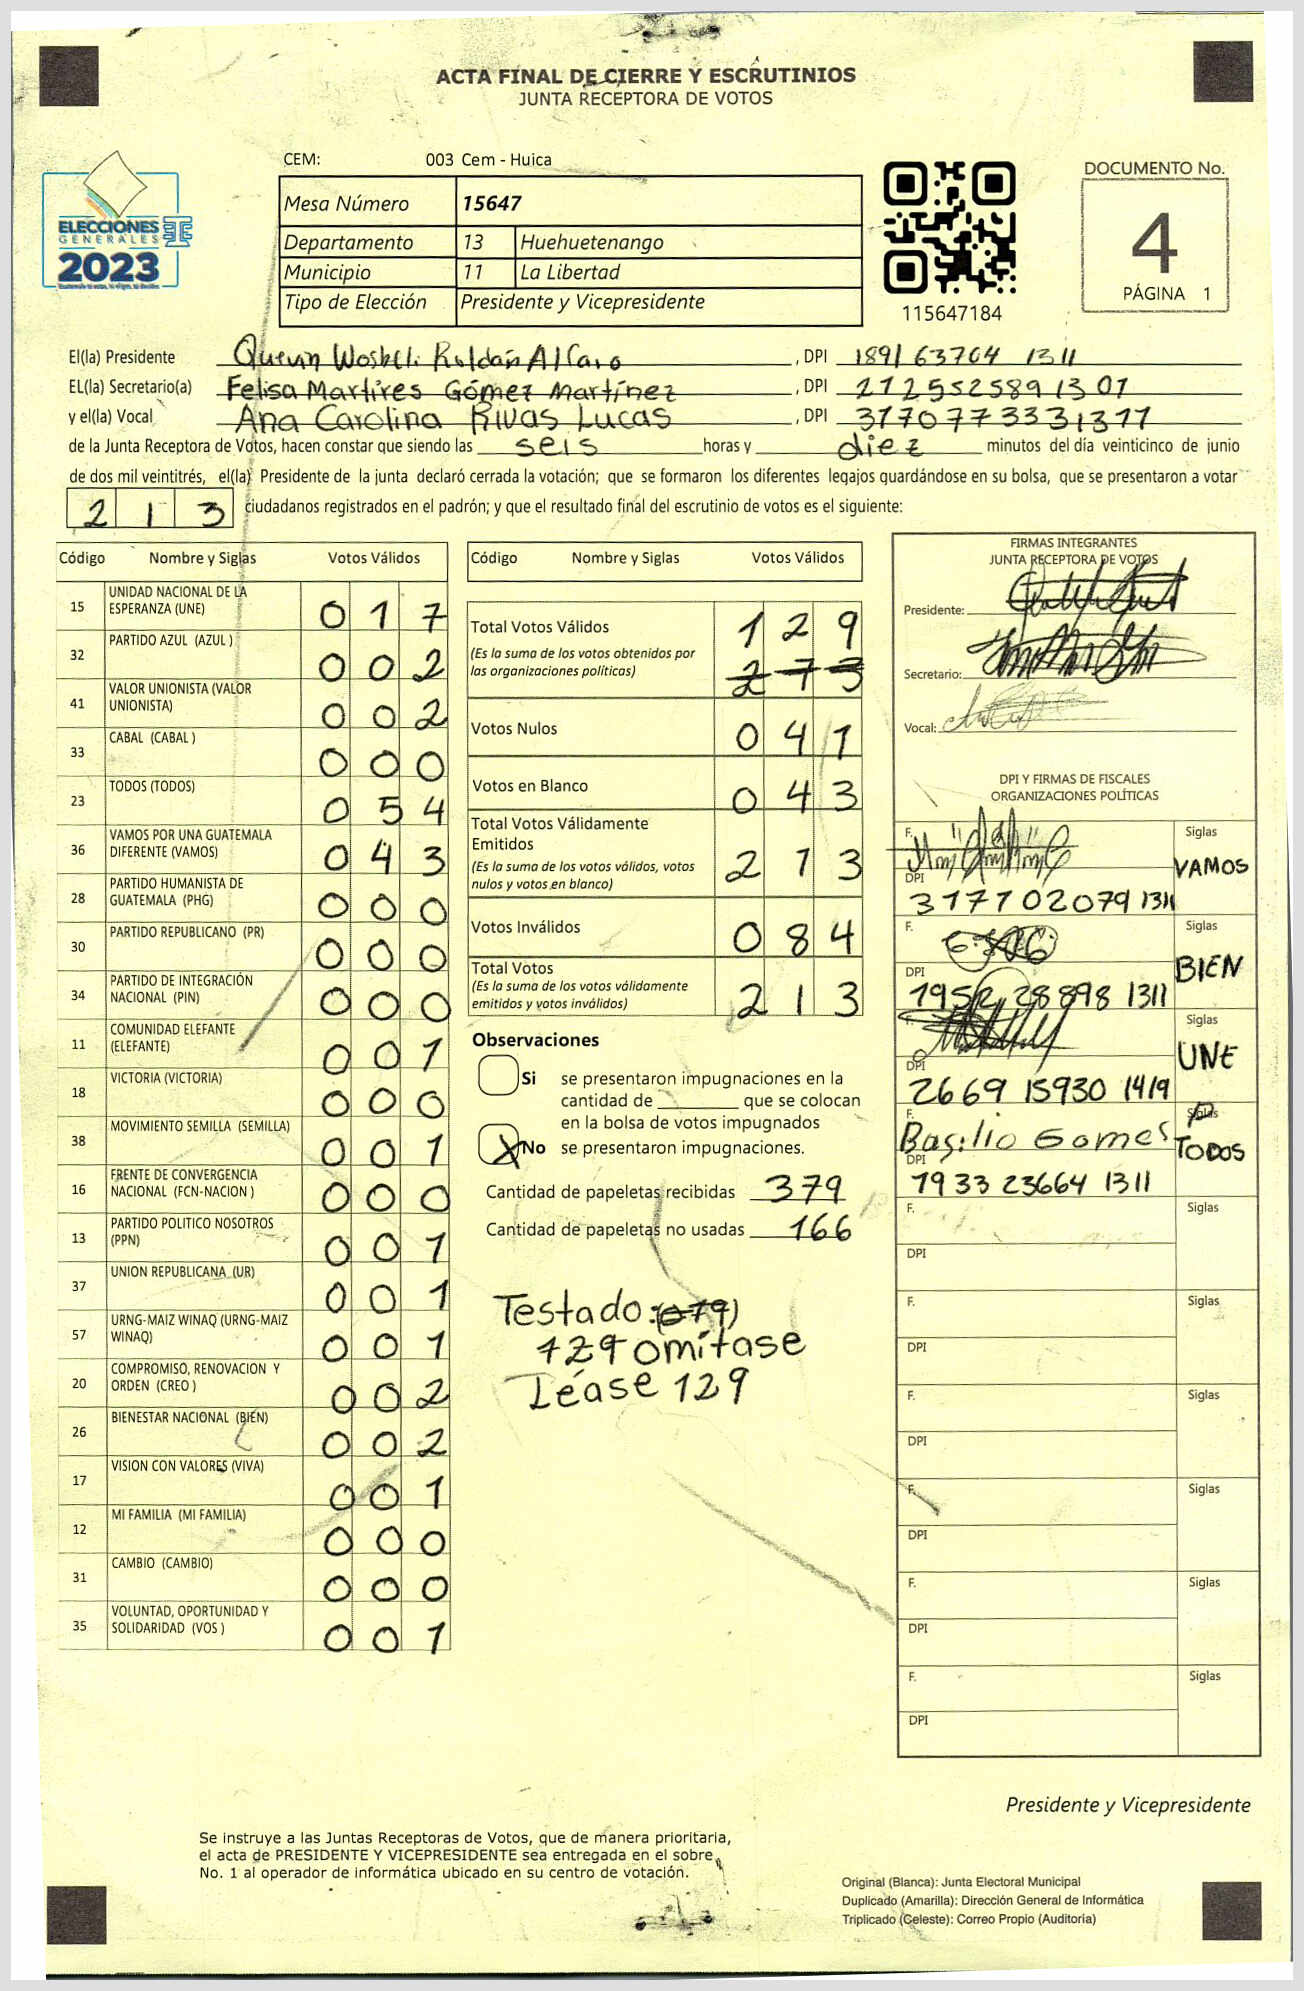 ACTA FINAL DE CIERRE Y ESCRUTINIOS
JUNTA RECEPTORA DE VOTOS
ELECCIONES
GENERALES
2023
CEM: 003 Cem - Huica
Mesa Número 15647
Departamento 13 Huehuetenango
Municipio 11 La Libertad
Tipo de Elección Presidente y Vicepresidente
115647184
DOCUMENTO No.
4
PÁGINA 1
El(la) Presidente Quevin Roldán Alfaro, DPI 1891 63704 1311
EL(la) Secretario(a) Felisa Martires Gómez Martínez, DPI 212552589 1301
y el(la) Vocal Ana Carolina Rivas Lucas, DPI 3170773331311
de la Junta Receptora de Votos, hacen constar que siendo las seis horas y diez minutos del día veinticinco de junio
de dos mil veintitrés, el(la) Presidente de la junta declaró cerrada la votación; que se formaron los diferentes legajos guardándose en su bolsa, que se presentaron a votar
213 ciudadanos registrados en el padrón; y que el resultado final del escrutinio de votos es el siguiente:
Código Nombre y Siglas Votos Válidos
15 UNIDAD NACIONAL DE LA ESPERANZA (UNE) 017
32 PARTIDO AZUL (AZUL ) 002
41 VALOR UNIONISTA (VALOR UNIONISTA) 002
33 CABAL (CABAL ) 000
23 TODOS (TODOS) 054
36 VAMOS POR UNA GUATEMALA DIFERENTE (VAMOS) 043
28 PARTIDO HUMANISTA DE GUATEMALA (PHG) 000
30 PARTIDO REPUBLICANO (PR) 000
34 PARTIDO DE INTEGRACIÓN NACIONAL (PIN) 000
11 COMUNIDAD ELEFANTE (ELEFANTE) 001
18 VICTORIA (VICTORIA) 000
38 MOVIMIENTO SEMILLA (SEMILLA) 001
16 FRENTE DE CONVERGENCIA NACIONAL (FCN-NACION ) 000
13 PARTIDO POLITICO NOSOTROS (PPN) 001
37 UNION REPUBLICANA (UR) 001
57 URNG-MAIZ WINAQ (URNG-MAIZ WINAQ) 001
20 COMPROMISO, RENOVACION Y ORDEN (CREO ) 002
26 BIENESTAR NACIONAL (BIEN) 002
17 VISION CON VALORES (VIVA) 001
12 MI FAMILIA (MI FAMILIA) 000
31 CAMBIO (CAMBIO) 000
35 VOLUNTAD, OPORTUNIDAD Y SOLIDARIDAD (VOS ) 001
Código Nombre y Siglas Votos Válidos
Total Votos Válidos 129
(Es la suma de los votos obtenidos por
las organizaciones políticas) 273
Votos Nulos 041
Votos en Blanco 043
Total Votos Válidamente
Emitidos
(Es la suma de los votos válidos, votos
nulos y votos en blanco) 213
Votos Inválidos 084
Total Votos
(Es la suma de los votos válidamente
emitidos y votos inválidos) 213
Observaciones
Si se presentaron impugnaciones en la
cantidad de que se colocan
en la bolsa de votos impugnados
X No se presentaron impugnaciones.
Cantidad de papeletas recibidas 379
Cantidad de papeletas no usadas 166
Testado:
129 omítase
Léase 129
FIRMAS INTEGRANTES
JUNTA RECEPTORA DE VOTOS
Presidente:
Secretario:
Vocal:
DPI Y FIRMAS DE FISCALES
ORGANIZACIONES POLÍTICAS
F. Siglas
VAMOS
DPI
3177 02079 1311
F. Siglas
BIEN
DPI
1952 28898 1311
F. Siglas
UNE
DPI
2669 15930 1419
F. Siglas
Basilio Gomes TODOS
DPI
1933 23664 1311
F. Siglas
DPI
F. Siglas
DPI
F. Siglas
DPI
F. Siglas
DPI
F. Siglas
DPI
F. Siglas
DPI
Presidente y Vicepresidente
Se instruye a las Juntas Receptoras de Votos, que de manera prioritaria,
el acta de PRESIDENTE Y VICEPRESIDENTE sea entregada en el sobre
No. 1 al operador de informática ubicado en su centro de votación.
Original (Blanca): Junta Electoral Municipal
Duplicado (Amarilla): Dirección General de Informática
Triplicado (Celeste): Correo Propio (Auditoria)